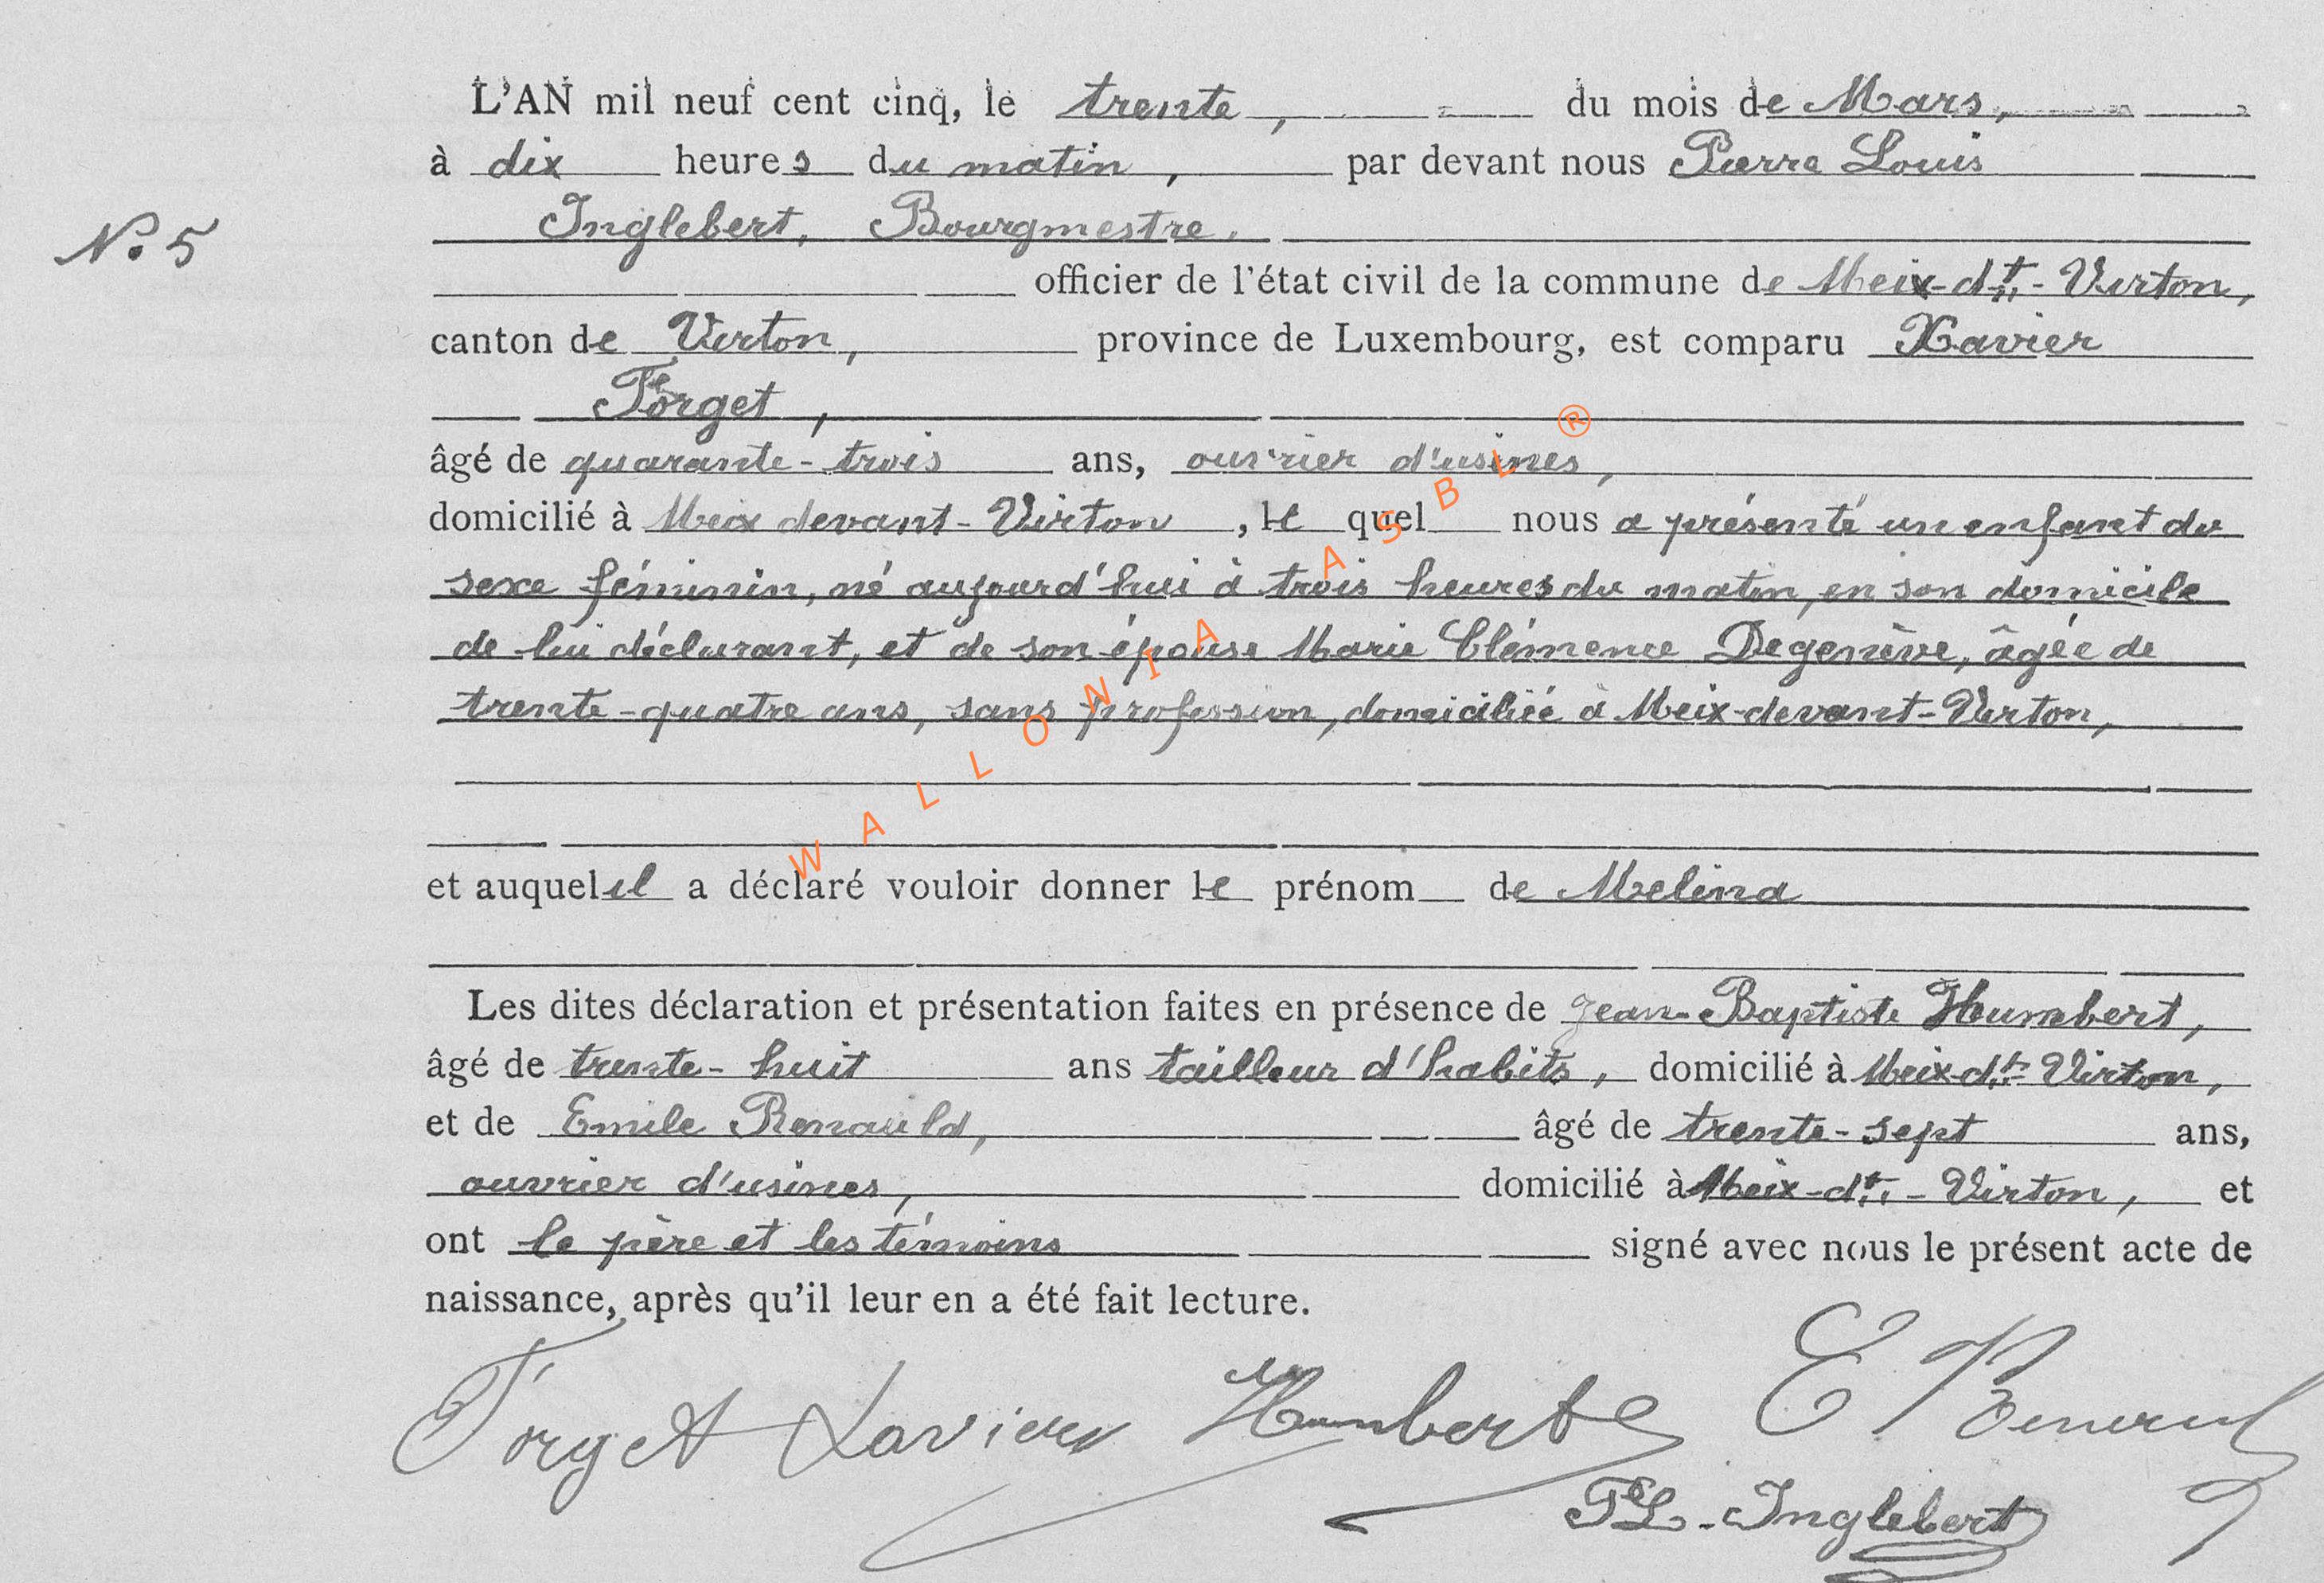 L'AN mil neuf cent cinq, le trente, du mois de Mars,
à dix heures du matin, par devant nous Pierre Louis
N.° 5
Inglebert, Bourgmestre.
officier de l'état civil de la commune de Meix-dt-Virton,
canton de Virton, province de Luxembourg, est comparu Xavier
Forget,
âgé de quarante-trois ans, ouvrier d'usines,
domicilié à Meix devant-Virton, lequel nous a présenté un enfant du
sexe féminin, né aujourd'hui à trois heures du matin, en son domicile
de lui déclarant, et de son épouse Marie Clémence Degenève, âgée de
trente-quatre ans, sans profession, domiciliée à Meix-devant-Virton,
et auquel il a déclaré vouloir donner le prénom de Melina
Les dites déclaration et présentation faites en présence de Jean-Baptiste Humbert,
âgé de trente-huit ans tailleur d'habits, domicilié à Meix-dt-Virton,
et de Emile Renauld, âgé de trente-sept ans,
ouvrier d'usines, domicilié à Meix-dt-Virton, et
ont le père et les témoins signé avec nous le présent acte de
naissance, après qu'il leur en a été fait lecture.
Forget Xavier Humbert E
P L. Inglebert
WALLONIA ASBL ®